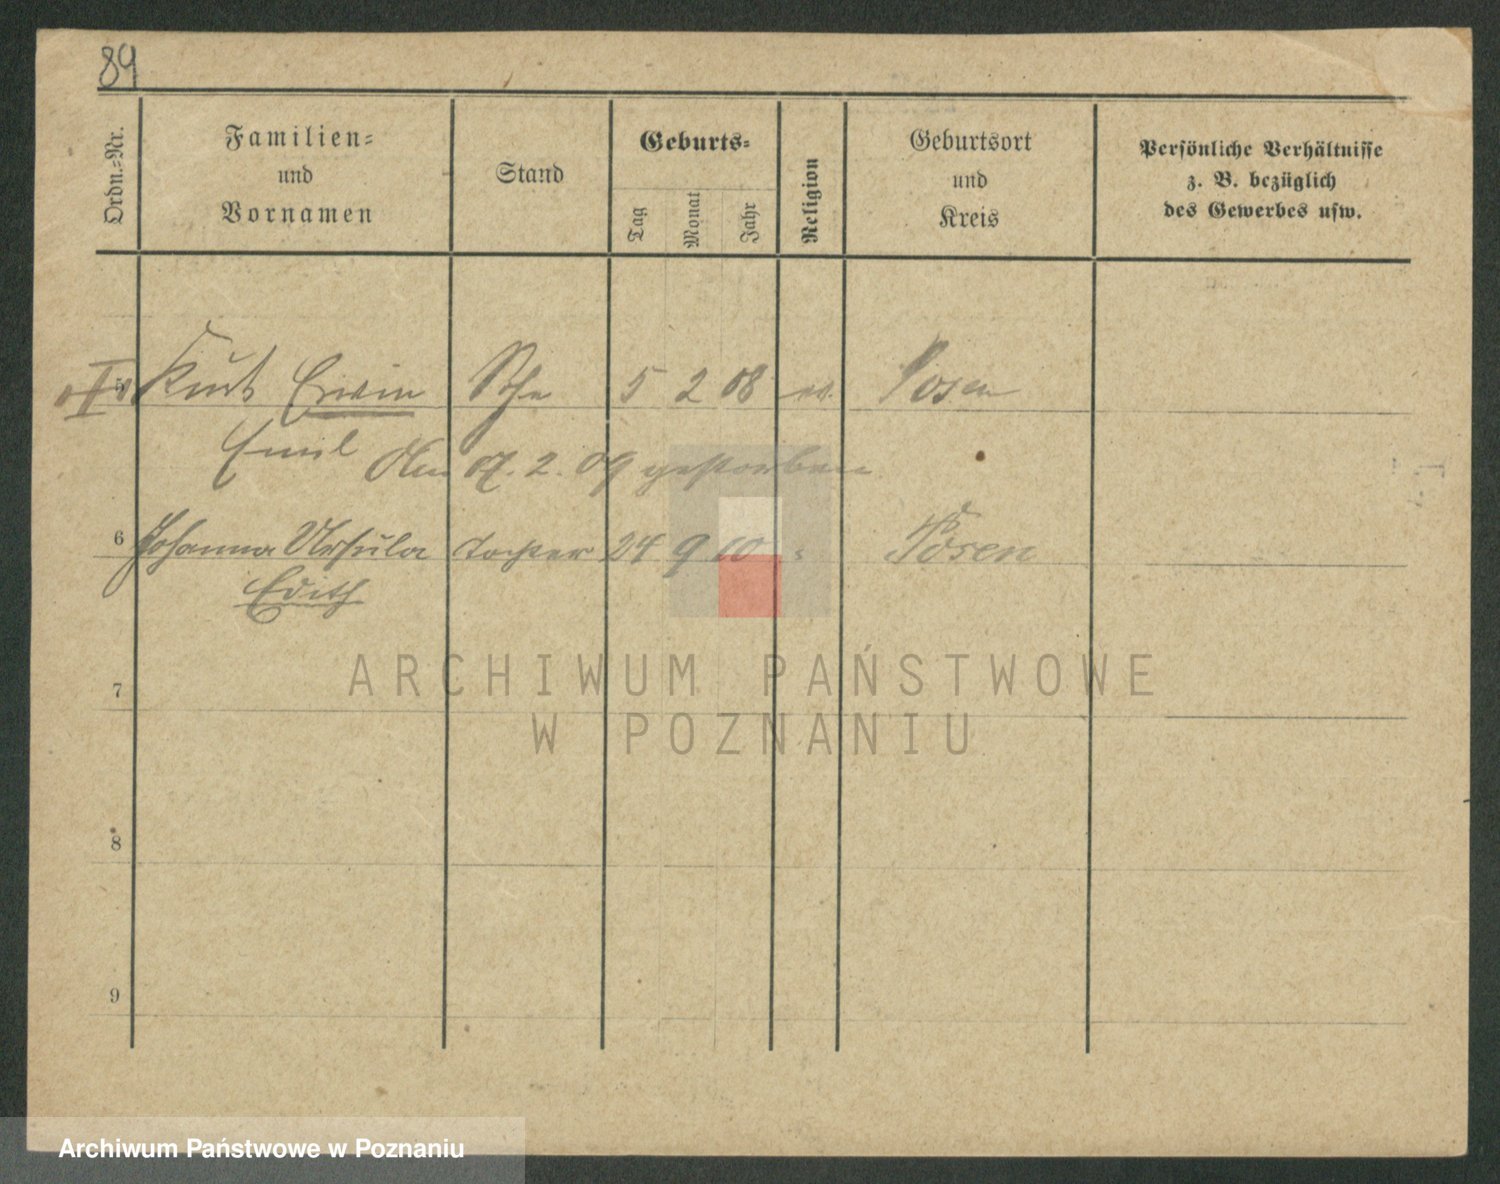 89
Ordn.-Nr.
Familien-
und
Vornamen
Stand
Geburts-
Tag
Monat
Jahr
Religion
Geburtsort
und
Kreis
Persönliche Verhältnisse
z. B. bezüglich
des Gewerbes usw.
5 Kurt Erwin 5 2 08 Posen
Emil
17. 2. 09 gestorben
6 Johanna Ursula Tochter 24 9 10 " Posen
Edith
7
8
9
ARCHIWUM PAŃSTWOWE
W POZNANIU
Archiwum Państwowe w Poznaniu